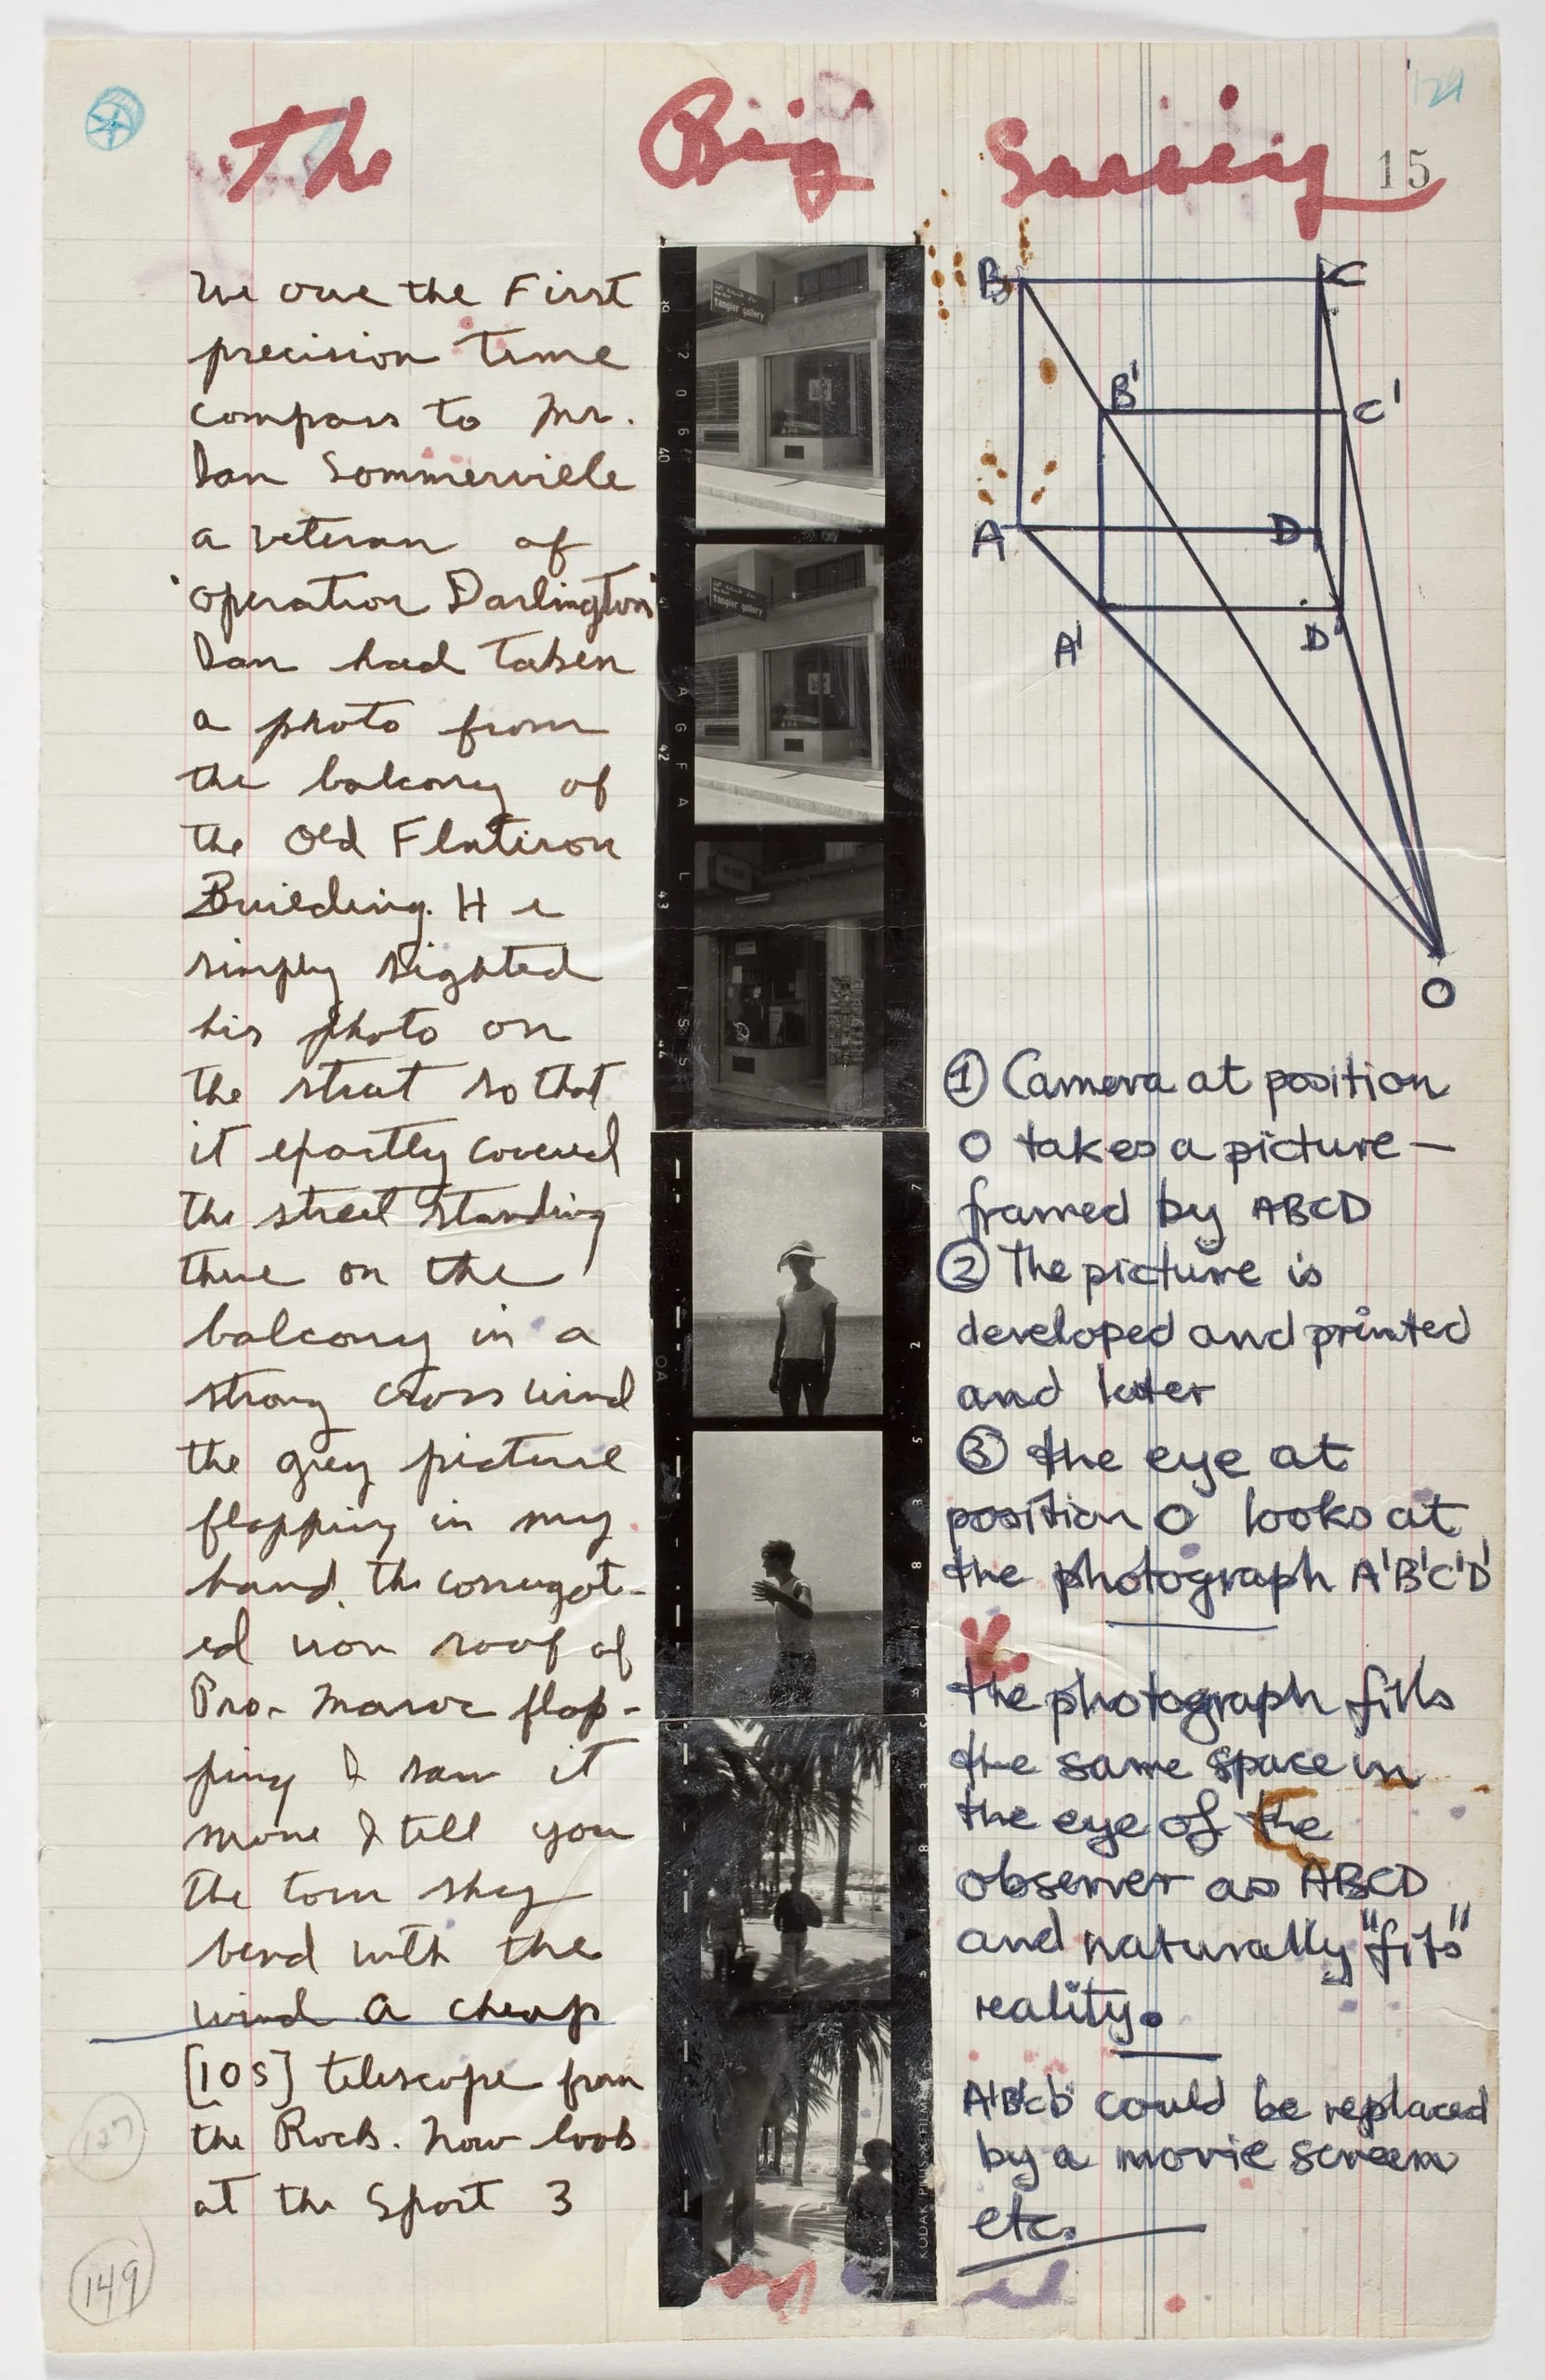 The Big Survey
15
We owe the First
precision Time
compass to Mr.
Dan Sommerville
a veteran of
"operation Darlington"
Dan had Taken
a photo from
the balcony of
the Old Flatiron
Building. He
simply sighted
his photo on
the street so that
it epartly covered
the street standing
there on the
balcony in a
strong cross wind
the grey picture
flapping in my
hand. the corrugat-
ed iron roof of
Pro-Maroc flap-
ping I saw it
move I tell you
the torn sky
bend with the
wind a cheap
[10S] telescope from
the Rock. Now look
at the Sport 3
149
Tangier gallery
Tangier gallery
B
C
B'
C'
A
D
A'
D'
O
① Camera at position
O takes a picture —
framed by ABCD
② The picture is
developed and printed
and later
③ the eye at
position O looks at
the photograph A'B'C'D'
the photograph fills
the same space in
the eye of the
observer as ABCD
and naturally "fits"
reality.
A'B'C'D' could be replaced
by a movie screen
etc.